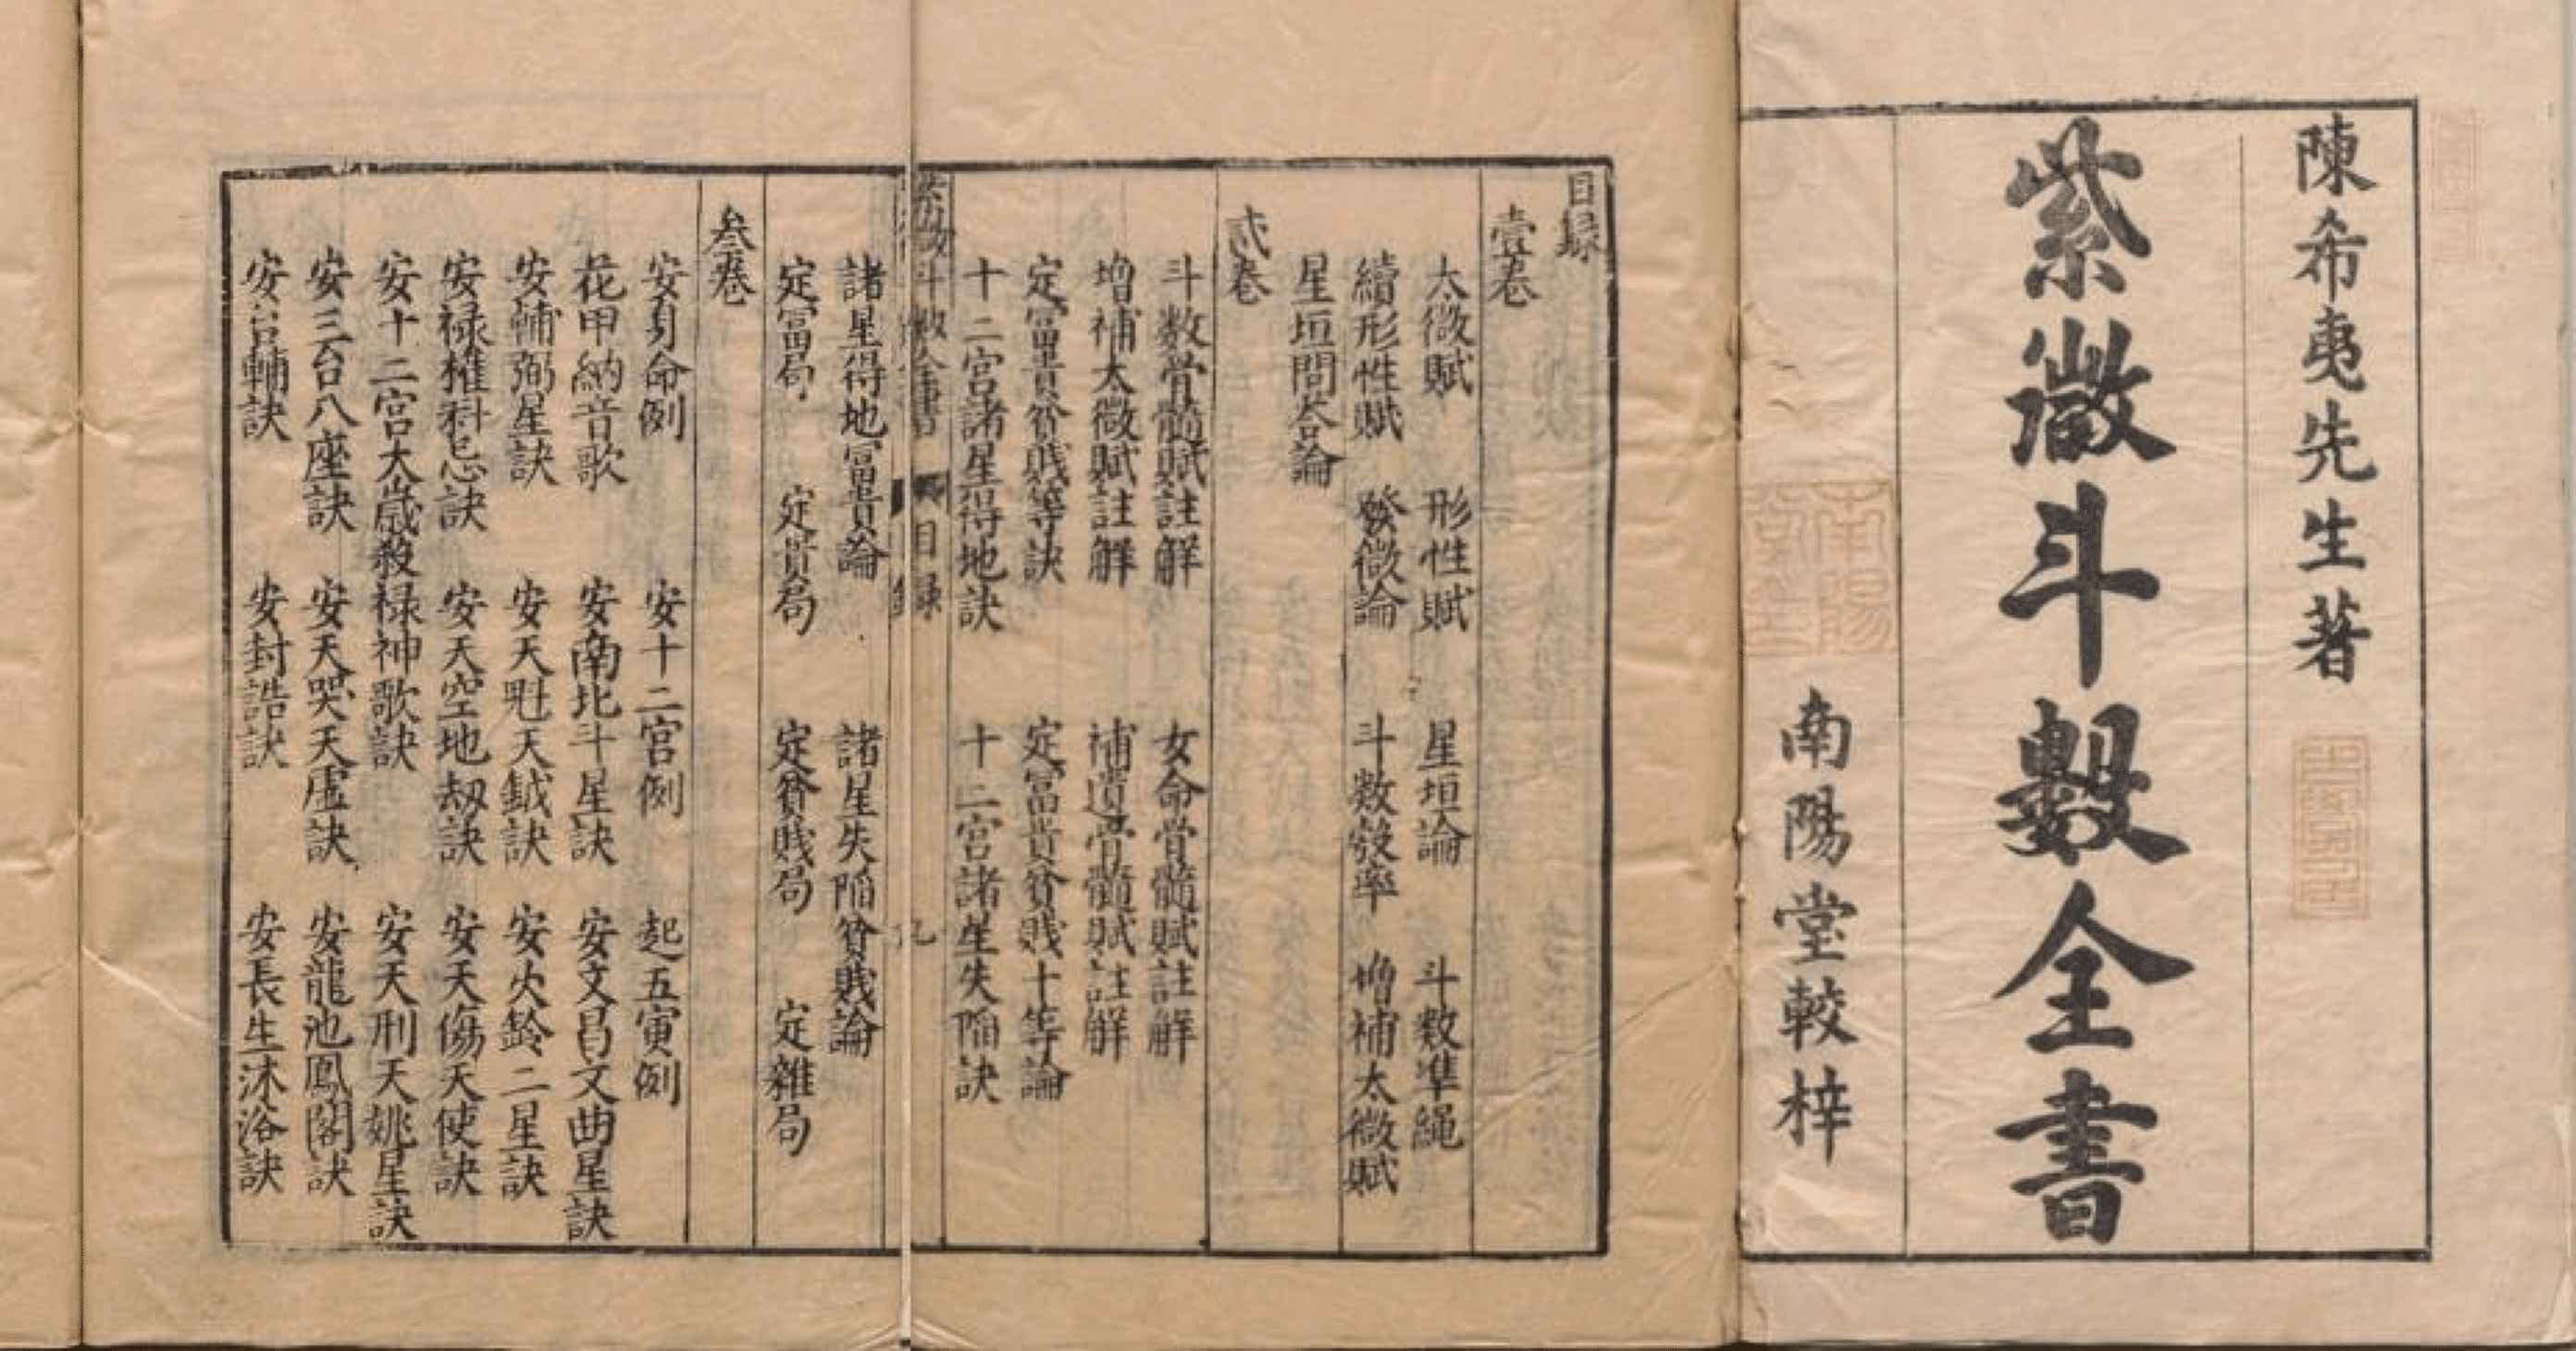 陳希夷先生著
紫微斗數全書
南陽堂較梓
南陽
目録
壹卷
太微賦 形性賦 星垣論 斗数準繩
續形性賦 發微論 斗数彀率 增補太微賦
星垣問荅論
貳卷
斗数骨髓賦註解 女命骨髓賦註解
增補太微賦註解 補遺骨髓賦註解
定冨貴貧賤等訣 定冨貴貧賤十等論
十二宫諸星得地訣 十二宫諸星失陷訣
紫微斗數全書 目録 九
諸星得地冨貴論 諸星失陷貧賤論
定冨局 定貴局 定貧賤局 定雜局
叁卷
安身命例 安十二宫例 起五寅例
花甲納音歌 安南北斗星訣 安文昌文曲星訣
安輔弼星訣 安天魁天鉞訣 安火鈴二星訣
安禄權科忌訣 安天空地刼訣 安天傷天使訣
安十二宫太歲殺禄神歌訣 安天刑天姚星訣
安三台八座訣 安天哭天虛訣 安龍池鳳閣訣
安台輔訣 安封誥訣 安長生沐浴訣